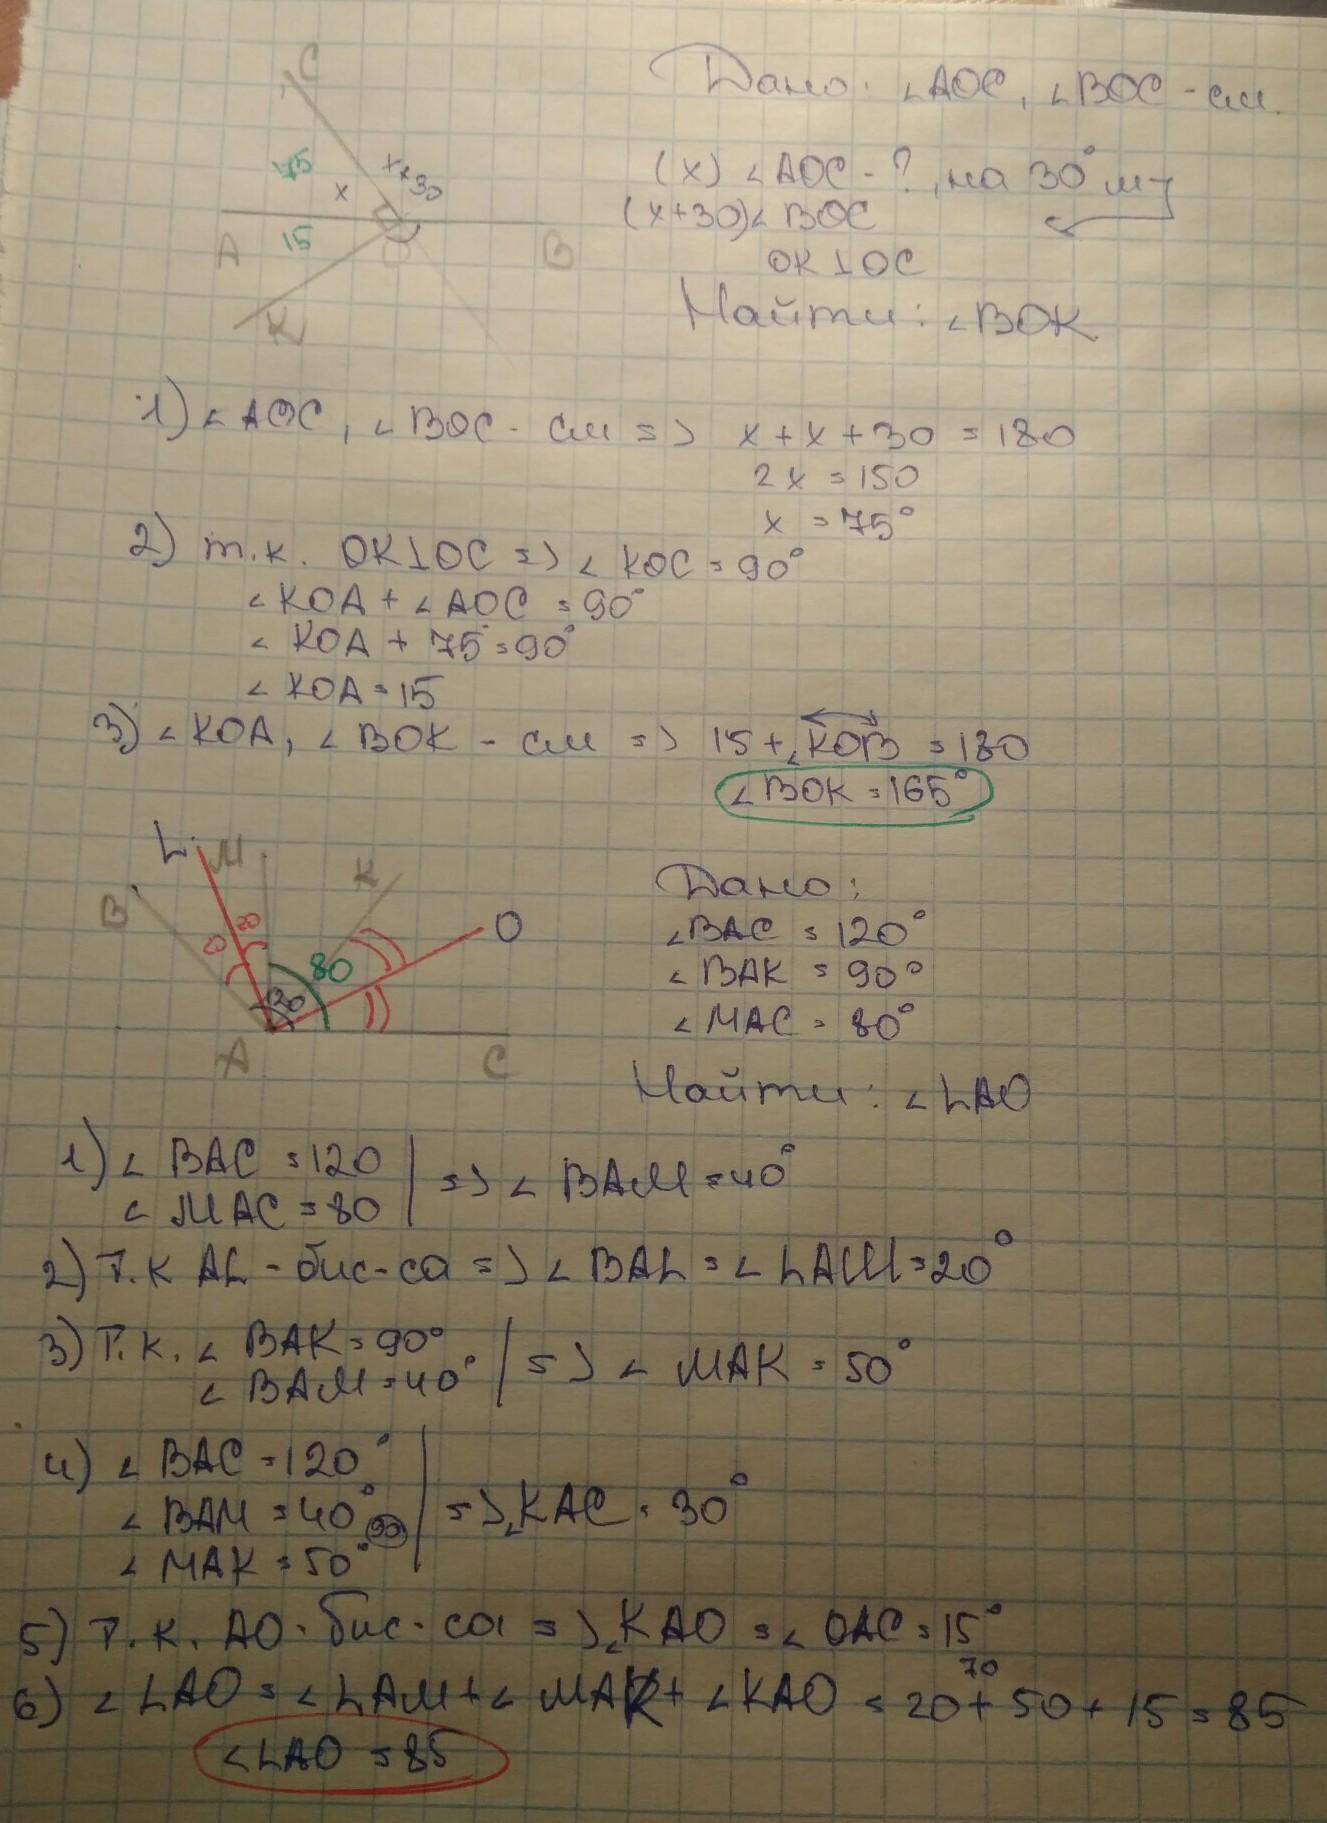 C
Дано: ∠AOC, ∠BOC - см.
75
x
x+30
(x) ∠AOC - ?, на 30° м
(x+30) ∠BOC
A
15
O
B
OK⊥OC
K
Найти: ∠BOK
1) ∠AOC, ∠BOC - см => x + x + 30 = 180
2x = 150
x = 75°
2) т.к. OK⊥OC => ∠KOC = 90°
∠KOA + ∠AOC = 90°
∠KOA + 75° = 90°
∠KOA = 15
3) ∠KOA, ∠BOK - см => 15 + ∠KOB = 180
∠BOK = 165°
L M K
B
O
20 20
80
120
A C
Дано:
∠BAC = 120°
∠BAK = 90°
∠MAC = 80°
Найти: ∠LAO
1) ∠BAC = 120
∠MAC = 80 | => ∠BAM = 40°
2) Т.к AL - бис-са => ∠BAL = ∠LAM = 20°
3) Т.к. ∠BAK = 90°
∠BAM = 40° | => ∠MAK = 50°
4) ∠BAC = 120°
∠BAM = 40° 90 | => ∠KAC = 30°
∠MAK = 50°
5) Т.к. AO - бис-са => ∠KAO = ∠OAC = 15°
70
6) ∠LAO = ∠LAM + ∠MAK + ∠KAO = 20 + 50 + 15 = 85
∠LAO = 85